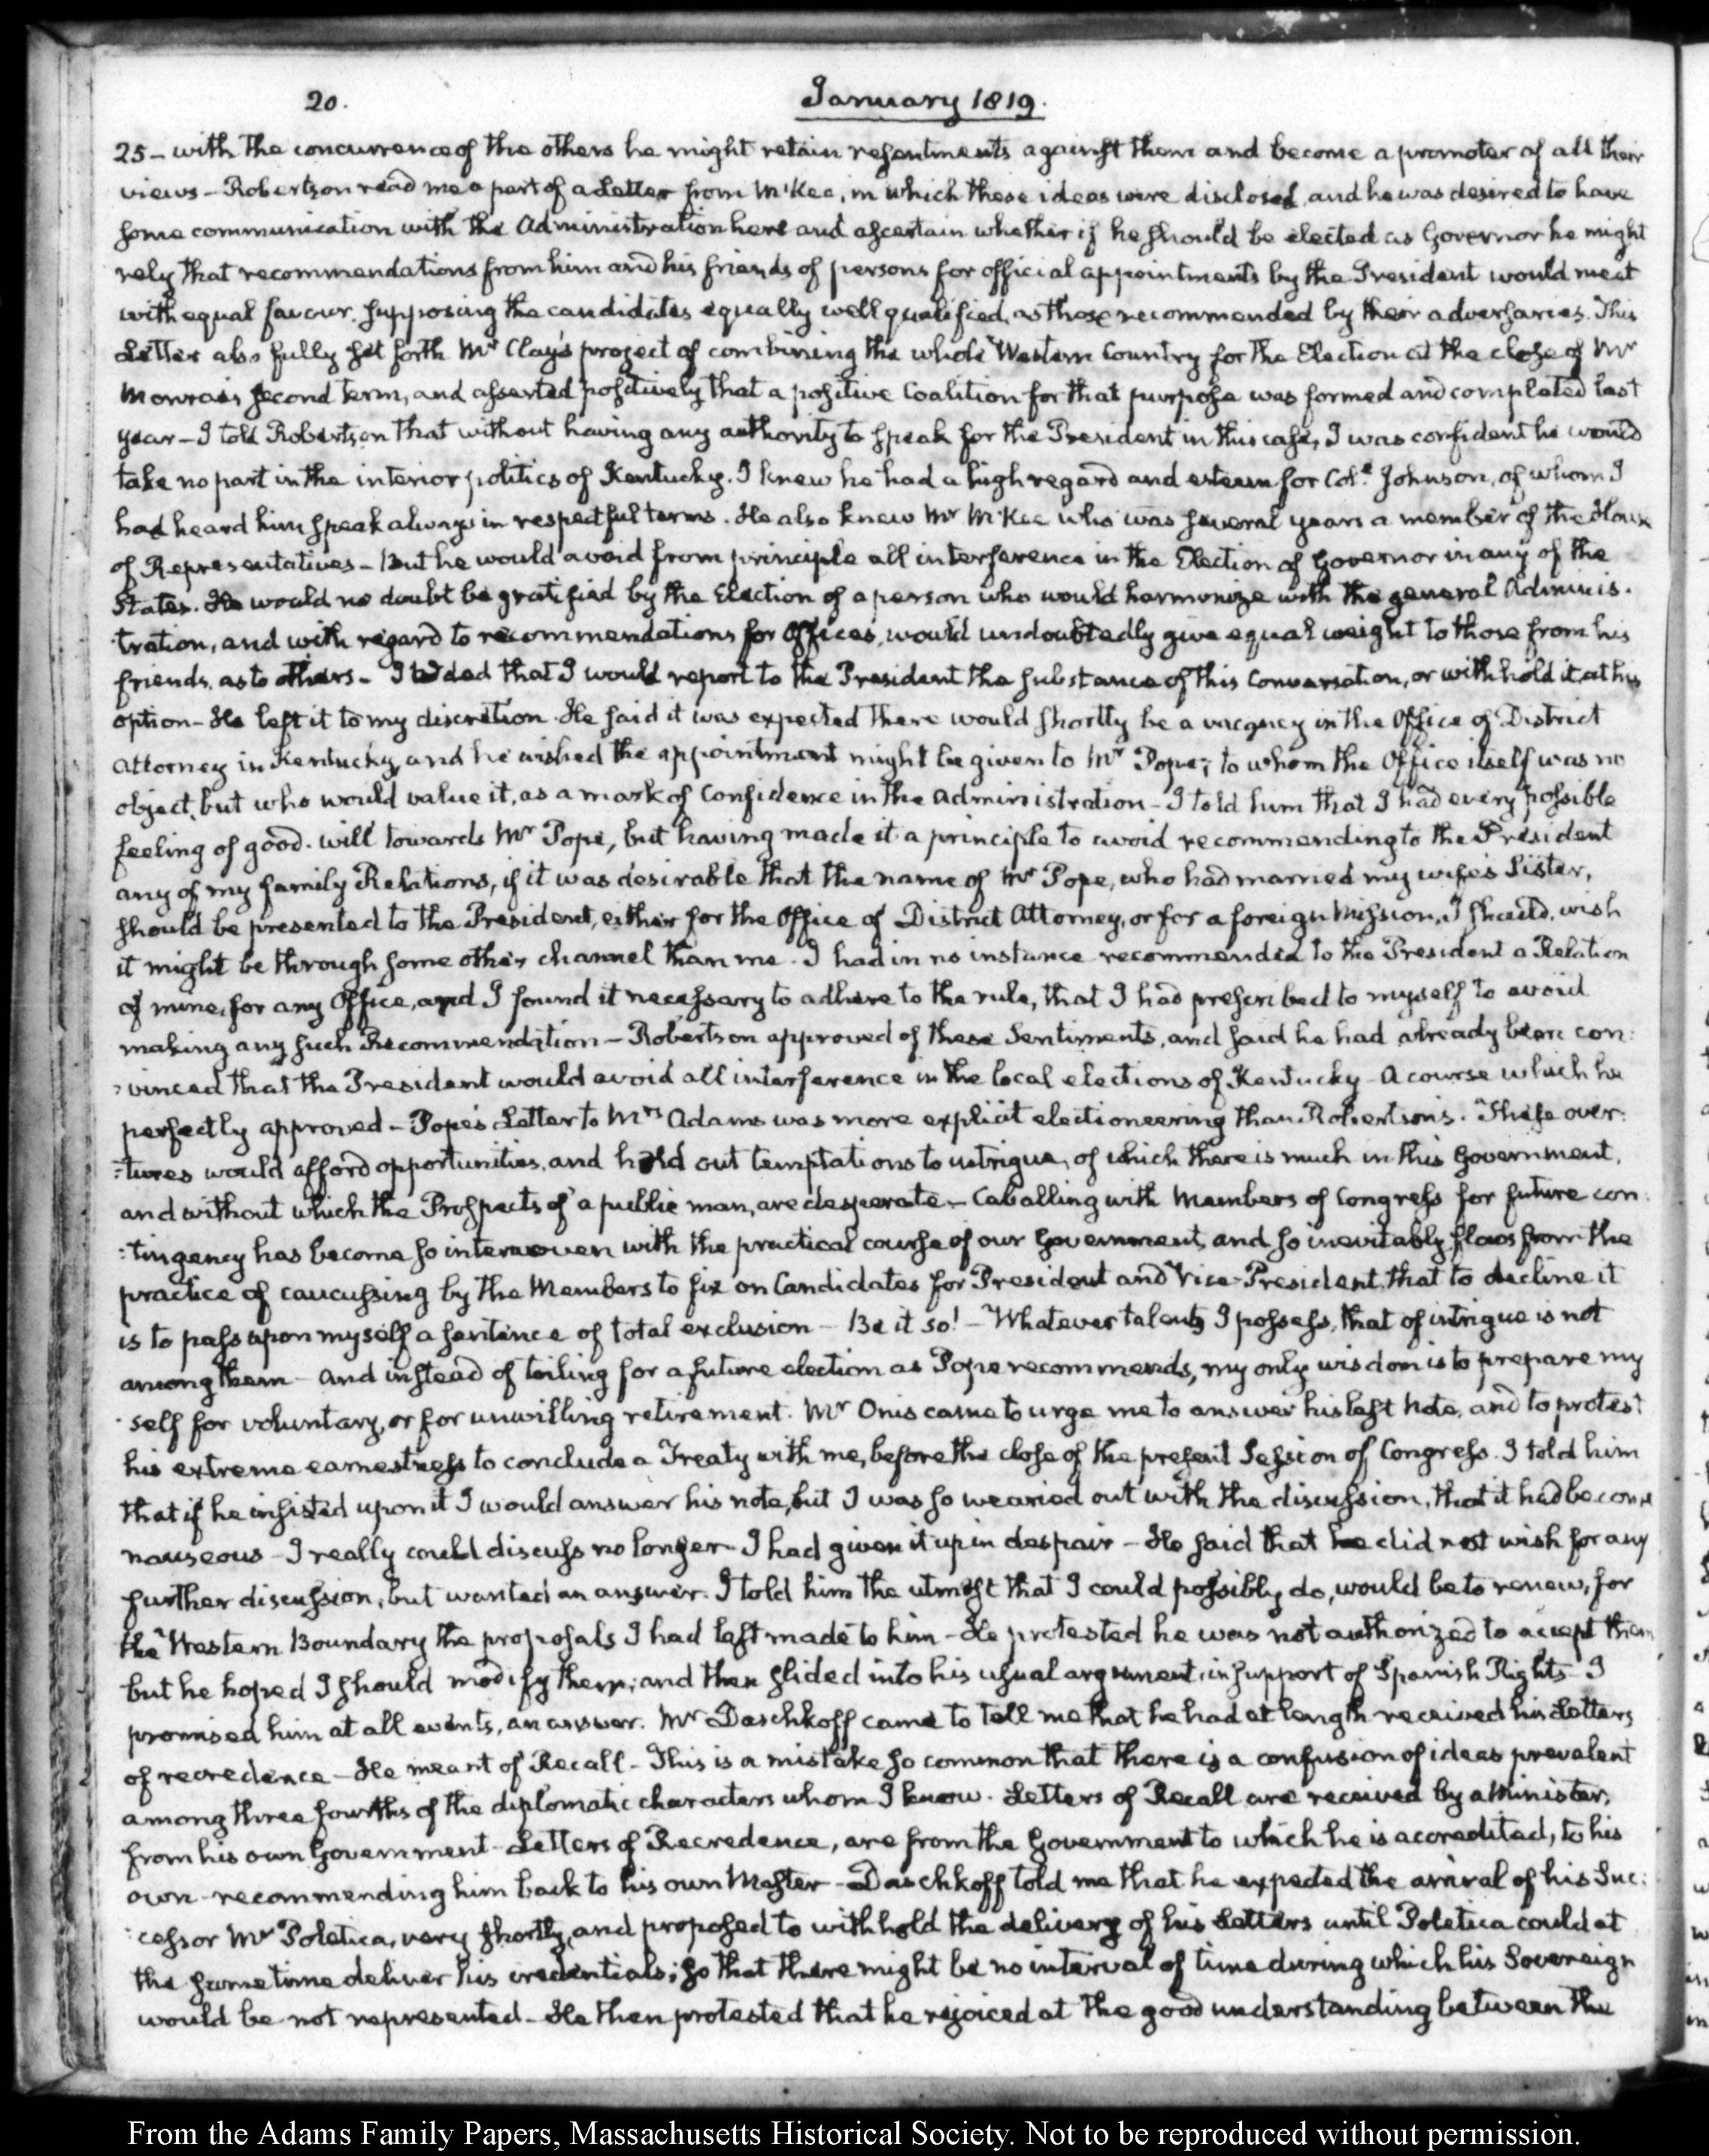 20.
January 1819.
25 - with the concurrence of the others he might retain resentments against them and become a promoter of all their
views - Robertson read me a part of a Letter from McKee, in which these ideas were disclosed, and he was desired to have
some communication with the Administration here and ascertain whether if he should be elected as Governor he might
rely that recommendations from him and his friends of persons for official appointments by the President would meet
with equal favour, supposing the candidates equally well qualified, as those recommended by their adversaries. This
Letter also fully set forth Mr Clay's project of combining the whole Western Country for the Election at the close of Mr
Monroe's second term, and asserted positively that a positive Coalition for that purpose was formed and completed last
year - I told Robertson that without having any authority to speak for the President in this case, I was confident he would
take no part in the interior politics of Kentucky. I knew he had a high regard and esteem for Coll. Johnson, of whom I
had heard him speak always in respectful terms. He also knew Mr McKee who was several years a member of the House
of Representatives - But he would avoid from principle all interference in the Election of Governor in any of the
States. He would no doubt be gratified by the Election of a person who would harmonize with the general Adminis-
tration, and with regard to recommendations for Offices, would undoubtedly give equal weight to those from his
friends, as to others - I added that I would report to the President the substance of this Conversation, or withhold it, at his
option - He left it to my discretion. He said it was expected there would shortly be a vacancy in the Office of District
Attorney in Kentucky, and he wished the appointment might be given to Mr Pope; to whom the Office itself was no
object, but who would value it, as a mark of Confidence in the Administration - I told him that I had every possible
feeling of good-will towards Mr Pope, but having made it a principle to avoid recommending to the President
any of my family Relations, if it was desirable that the name of Mr Pope, who had married my wife's Sister,
should be presented to the President, either for the Office of District Attorney, or for a foreign Mission, I should wish
it might be through some other channel than me. I had in no instance recommended to the President a Relation
of mine, for any Office, and I found it necessary to adhere to the rule, that I had prescribed to myself to avoid
making any such Recommendation - Robertson approved of these Sentiments, and said he had already been con:
:vinced that the President would avoid all interference in the local elections of Kentucky - A course which he
perfectly approved - Pope's Letter to Mrs Adams was more explicit electioneering than Robertson's. These over:
:tures would afford opportunities, and hold out temptations to intrigue, of which there is much in this Government,
and without which the Prospects of a public man, are desperate - Caballing with Members of Congress for future con:
:tingency has become so interwoven with the practical course of our Government, and so inevitably flows from the
practice of caucussing by the Members to fix on Candidates for President and Vice-President, that to decline it
is to pass upon myself a sentence of total exclusion - Be it so! - Whatever talents I possess, that of intrigue is not
among them - And instead of toiling for a future election as Pope recommends, my only wisdom is to prepare my
self for voluntary, or for unwilling retirement. Mr Onis came to urge me to answer his last Note, and to protest
his extreme earnestness to conclude a Treaty with me, before the close of the present Session of Congress. I told him
that if he insisted upon it I would answer his note, but I was so wearied out with the discussion, that it had become
nauseous - I really could discuss no longer - I had given it up in despair - He said that he did not wish for any
further discussion, but wanted an answer. I told him the utmost that I could possibly do, would be to renew, for
the Western Boundary the proposals I had last made to him - He protested he was not authorized to accept them
but he hoped I should modify them; and then slided into his usual argument, in support of Spanish Rights - I
promised him at all events, an answer. Mr Daschkoff came to tell me that he had at length received his Letters
of recredence - He meant of Recall - This is a mistake so common that there is a confusion of ideas prevalent
among three fourths of the diplomatic characters whom I know. Letters of Recall are received by a Minister,
from his own Government - Letters of Recredence, are from the Government to which he is accredited, to his
own - recommending him back to his own Master - Daschkoff told me that he expected the arrival of his Suc:
:cessor Mr Poletica, very shortly, and proposed to withhold the delivery of his Letters until Poletica could at
the same time deliver his credentials; so that there might be no interval of time during which his Sovereign
would be not represented - He then protested that he rejoiced at the good understanding between the
From the Adams Family Papers, Massachusetts Historical Society. Not to be reproduced without permission.